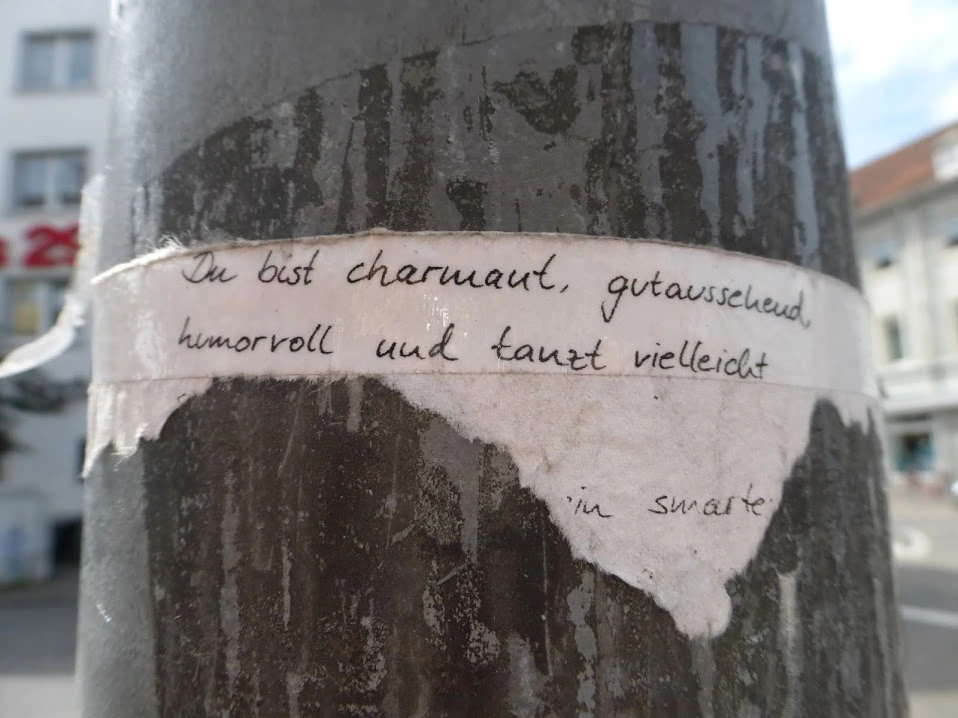 Du bist charmant, gutaussehend,
humorvoll und tanzt vielleicht
in smarte